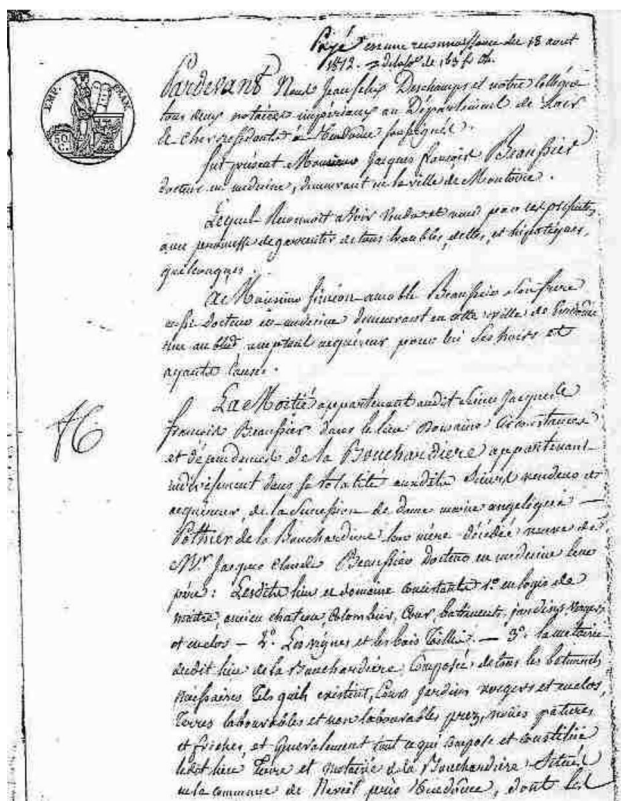 Payé une reconnaissance du 13 aout
1812. de 163 f.
EMP. FRAN.
Pardevant Nous Jean felix Deschamps et notre Collégue
tous deux notaires impériaux au Département de Loir
et Cher residants à Vendome soussignés.
fut present Monsieur Jacques françois Beaussier
docteur en medecine, demeurant en la ville de Montoire.
Lequel Reconnoit avoir vendu et par ces présentes
avec promesse de garentir de tous troubles, dettes, et hipotéques,
quelconques.
A Monsieur Siméon amable Beaussier son frere
aussi docteur en medecine demeurant en cette ville de Vendome
rue au bled, acceptant acquéreur pour lui ses hoirs et
ayants cause.
La Moitié appartenant audit Sieur Jacques
françois Beaussier dans le lieu Domaine Circonstances
et dépendances de la Bouchardiere appartenant
dans sa totalité auxdits Sieurs vendeur et
acquéreur de la Succession de dame marie angelique
Pothier de la Bouchardiere leur mere décédée veuve de
Mr. Jacques Claude Beaussier Docteur en medecine leur
pére: Lesdits lieu et domaine consistants 1º. en logis de
maitre, ancien chateau, Colombier, Cour, batiments, jardins vergers
et enclos – 2º. Les vignes et les bois Taillis. – 3º. la métairie
dudit lieu de la Bouchardiere Composée de tous les bâtiments
nécessaires Tels qu'ils existent, Cours Jardins vergers et enclos,
Terres labourables et non labourables prez, noües pâtures
et friches, et Généralement tout ce qui compose et constitue
ledit lieu Terre et métairie de la Bouchardiere Situés
en la commune de Naveil près Vendome, dont les